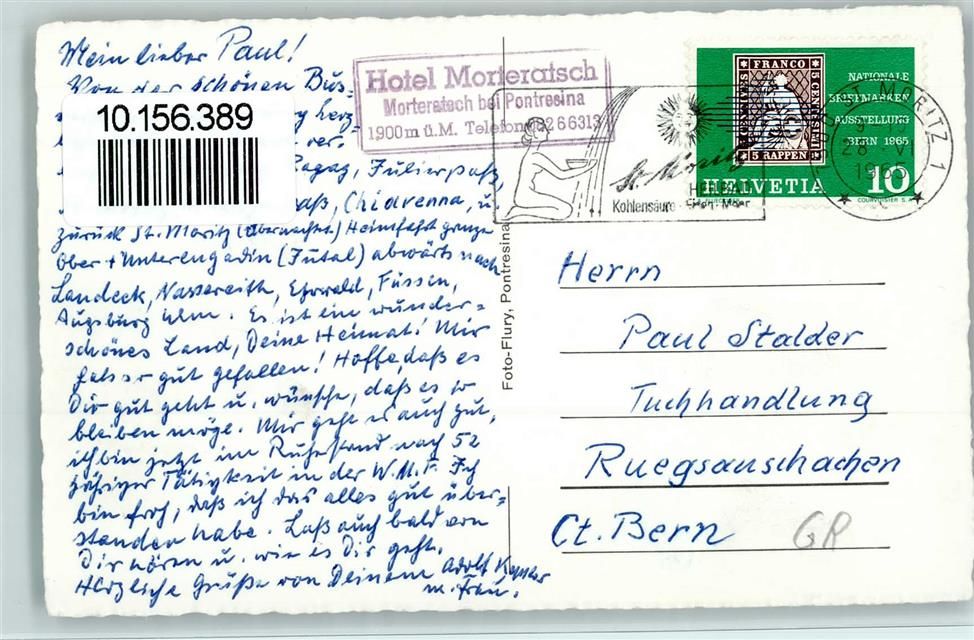 Mein lieber Paul!
Von der schönen Bus-
herz-
10.156.389
ver-
Ragaz, Julierpaß,
paß, Chiavenna, u.
zurück St. Moritz (übernachtet) Heimfahrt ganze
Ober + Unterengadin (Inntal) abwärts nach
Landeck, Nassereith, Ehrwald, Füssen,
Augsburg Ulm. Es ist ein wunder=
schönes Land, Deine Heimat! Mir
gut gefallen! Hoffe, daß es
Dir gut geht u. wünsche, daß es so
bleiben möge. Mir geht es auch gut,
ich bin jetzt im Ruhestand nach 52
jähriger Tätigkeit in der W.M.F. Ich
bin froh, daß ich das alles gut über=
standen habe. Laß auch bald von
Dir hören u. wie es Dir geht.
Herzliche Grüße von Deinem Adolf
m. Frau.
Hotel Morteratsch
Morteratsch bei Pontresina
1900 m ü. M. Telefon 082 6 63 13
St. Moritz
HEILBAD
Kohlensäure - Sport - Moor
FRANCO
5 RAPPEN
NATIONALE
BRIEFMARKEN
AUSSTELLUNG
BERN 1965
HELVETIA 10
COURVOISIER S.A.
ST. MORITZ 1
28. VI.
1965
Foto-Flury, Pontresina
Herrn
Paul Stalder
Tuchhandlung
Ruegsauschachen
Ct. Bern
GR